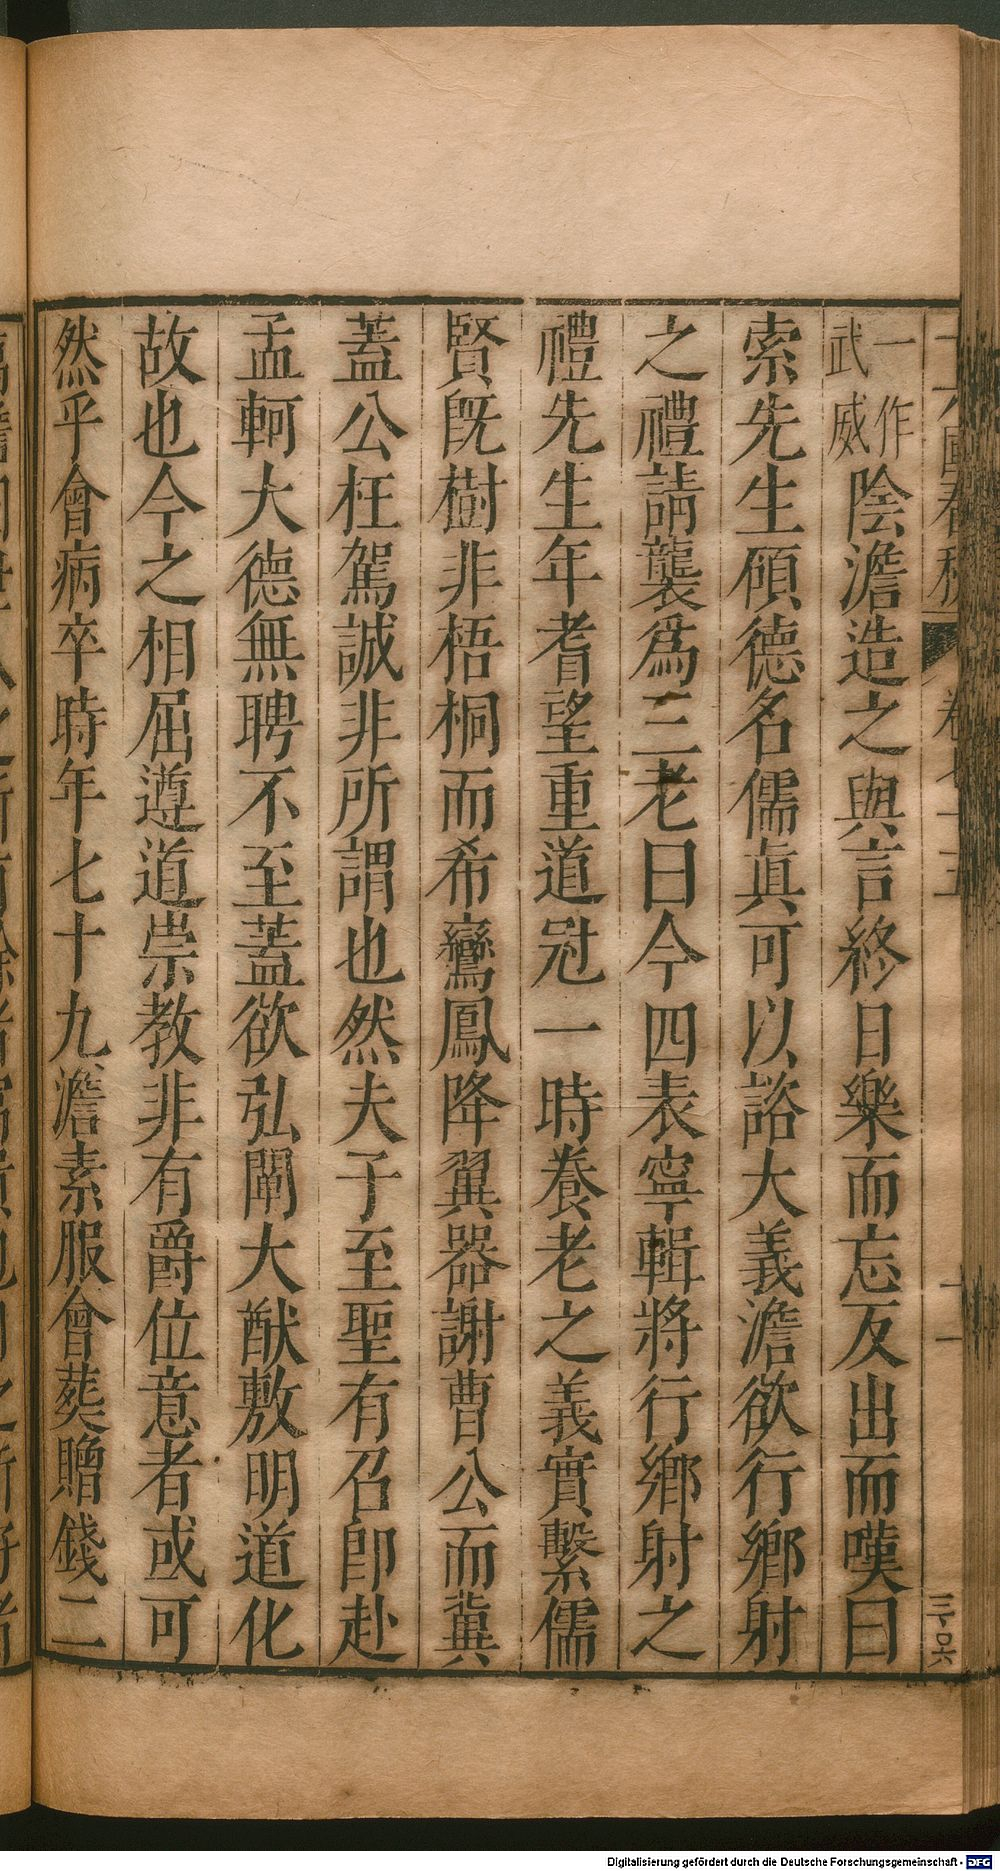 一作武威陰澹造之與言終日樂而忘反出而嘆曰
索先生碩德名儒眞可以諮大義澹欲行鄉射
之禮請襲爲三老曰今四表寧輯將行鄉射之
禮先生年耆望重道冠一時養老之義實繫儒
賢旣樹非梧桐而希鸞鳳降翼器謝曹公而冀
蓋公枉駕誠非所謂也然夫子至聖有召卽赴
孟軻大德無聘不至蓋欲弘闡大猷敷明道化
故也今之相屈遵道崇教非有爵位意者或可
然乎會病卒時年七十九澹素服會葬贈錢二
Digitalisierung gefördert durch die Deutsche Forschungsgemeinschaft - DFG